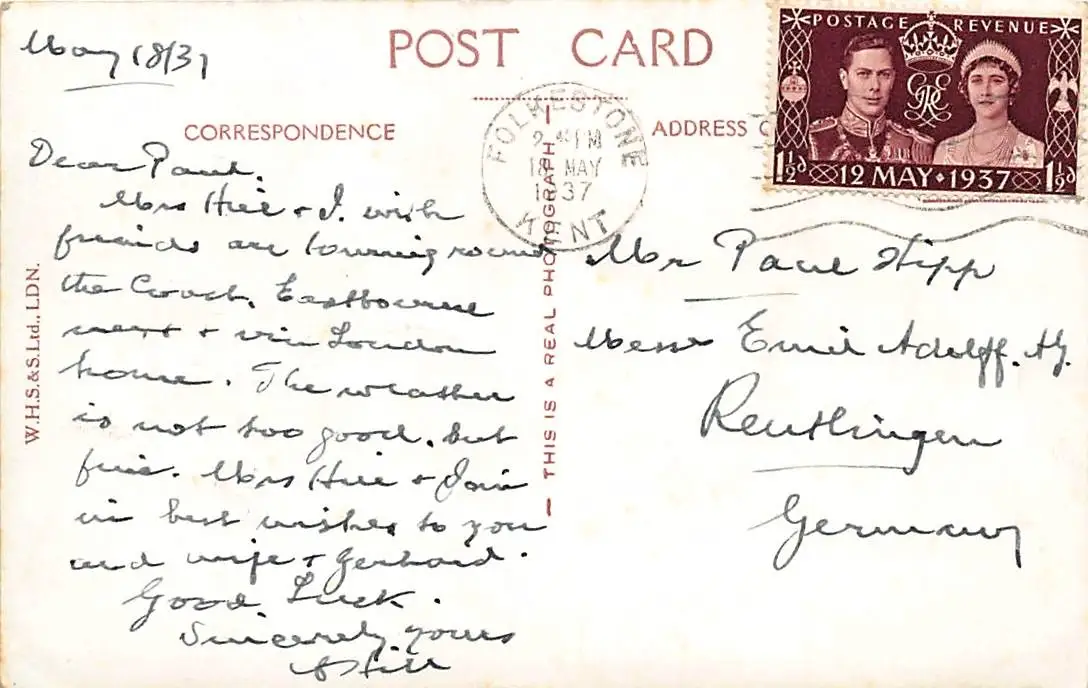 May 18/37
POST CARD
POSTAGE REVENUE
1½d 12 MAY 1937 1½d
FOLKESTONE
2 PM
18 MAY
1937
KENT
CORRESPONDENCE
ADDRESS
Dear Paul.
Mrs Hill & I. with
friends are touring round
the Coast. Eastbourne
next & via London
home. The weather
is not too good. but
fine. Mrs Hill & Join
in best wishes to you
and wife & Gerhard.
Good Luck.
Sincerely yours
Hill
Mr Paul Hipp
Messrs Emil Adolff. AG.
Reutlingen
Germany
THIS IS A REAL PHOTOGRAPH
W.H.S.&S.Ltd., LDN.